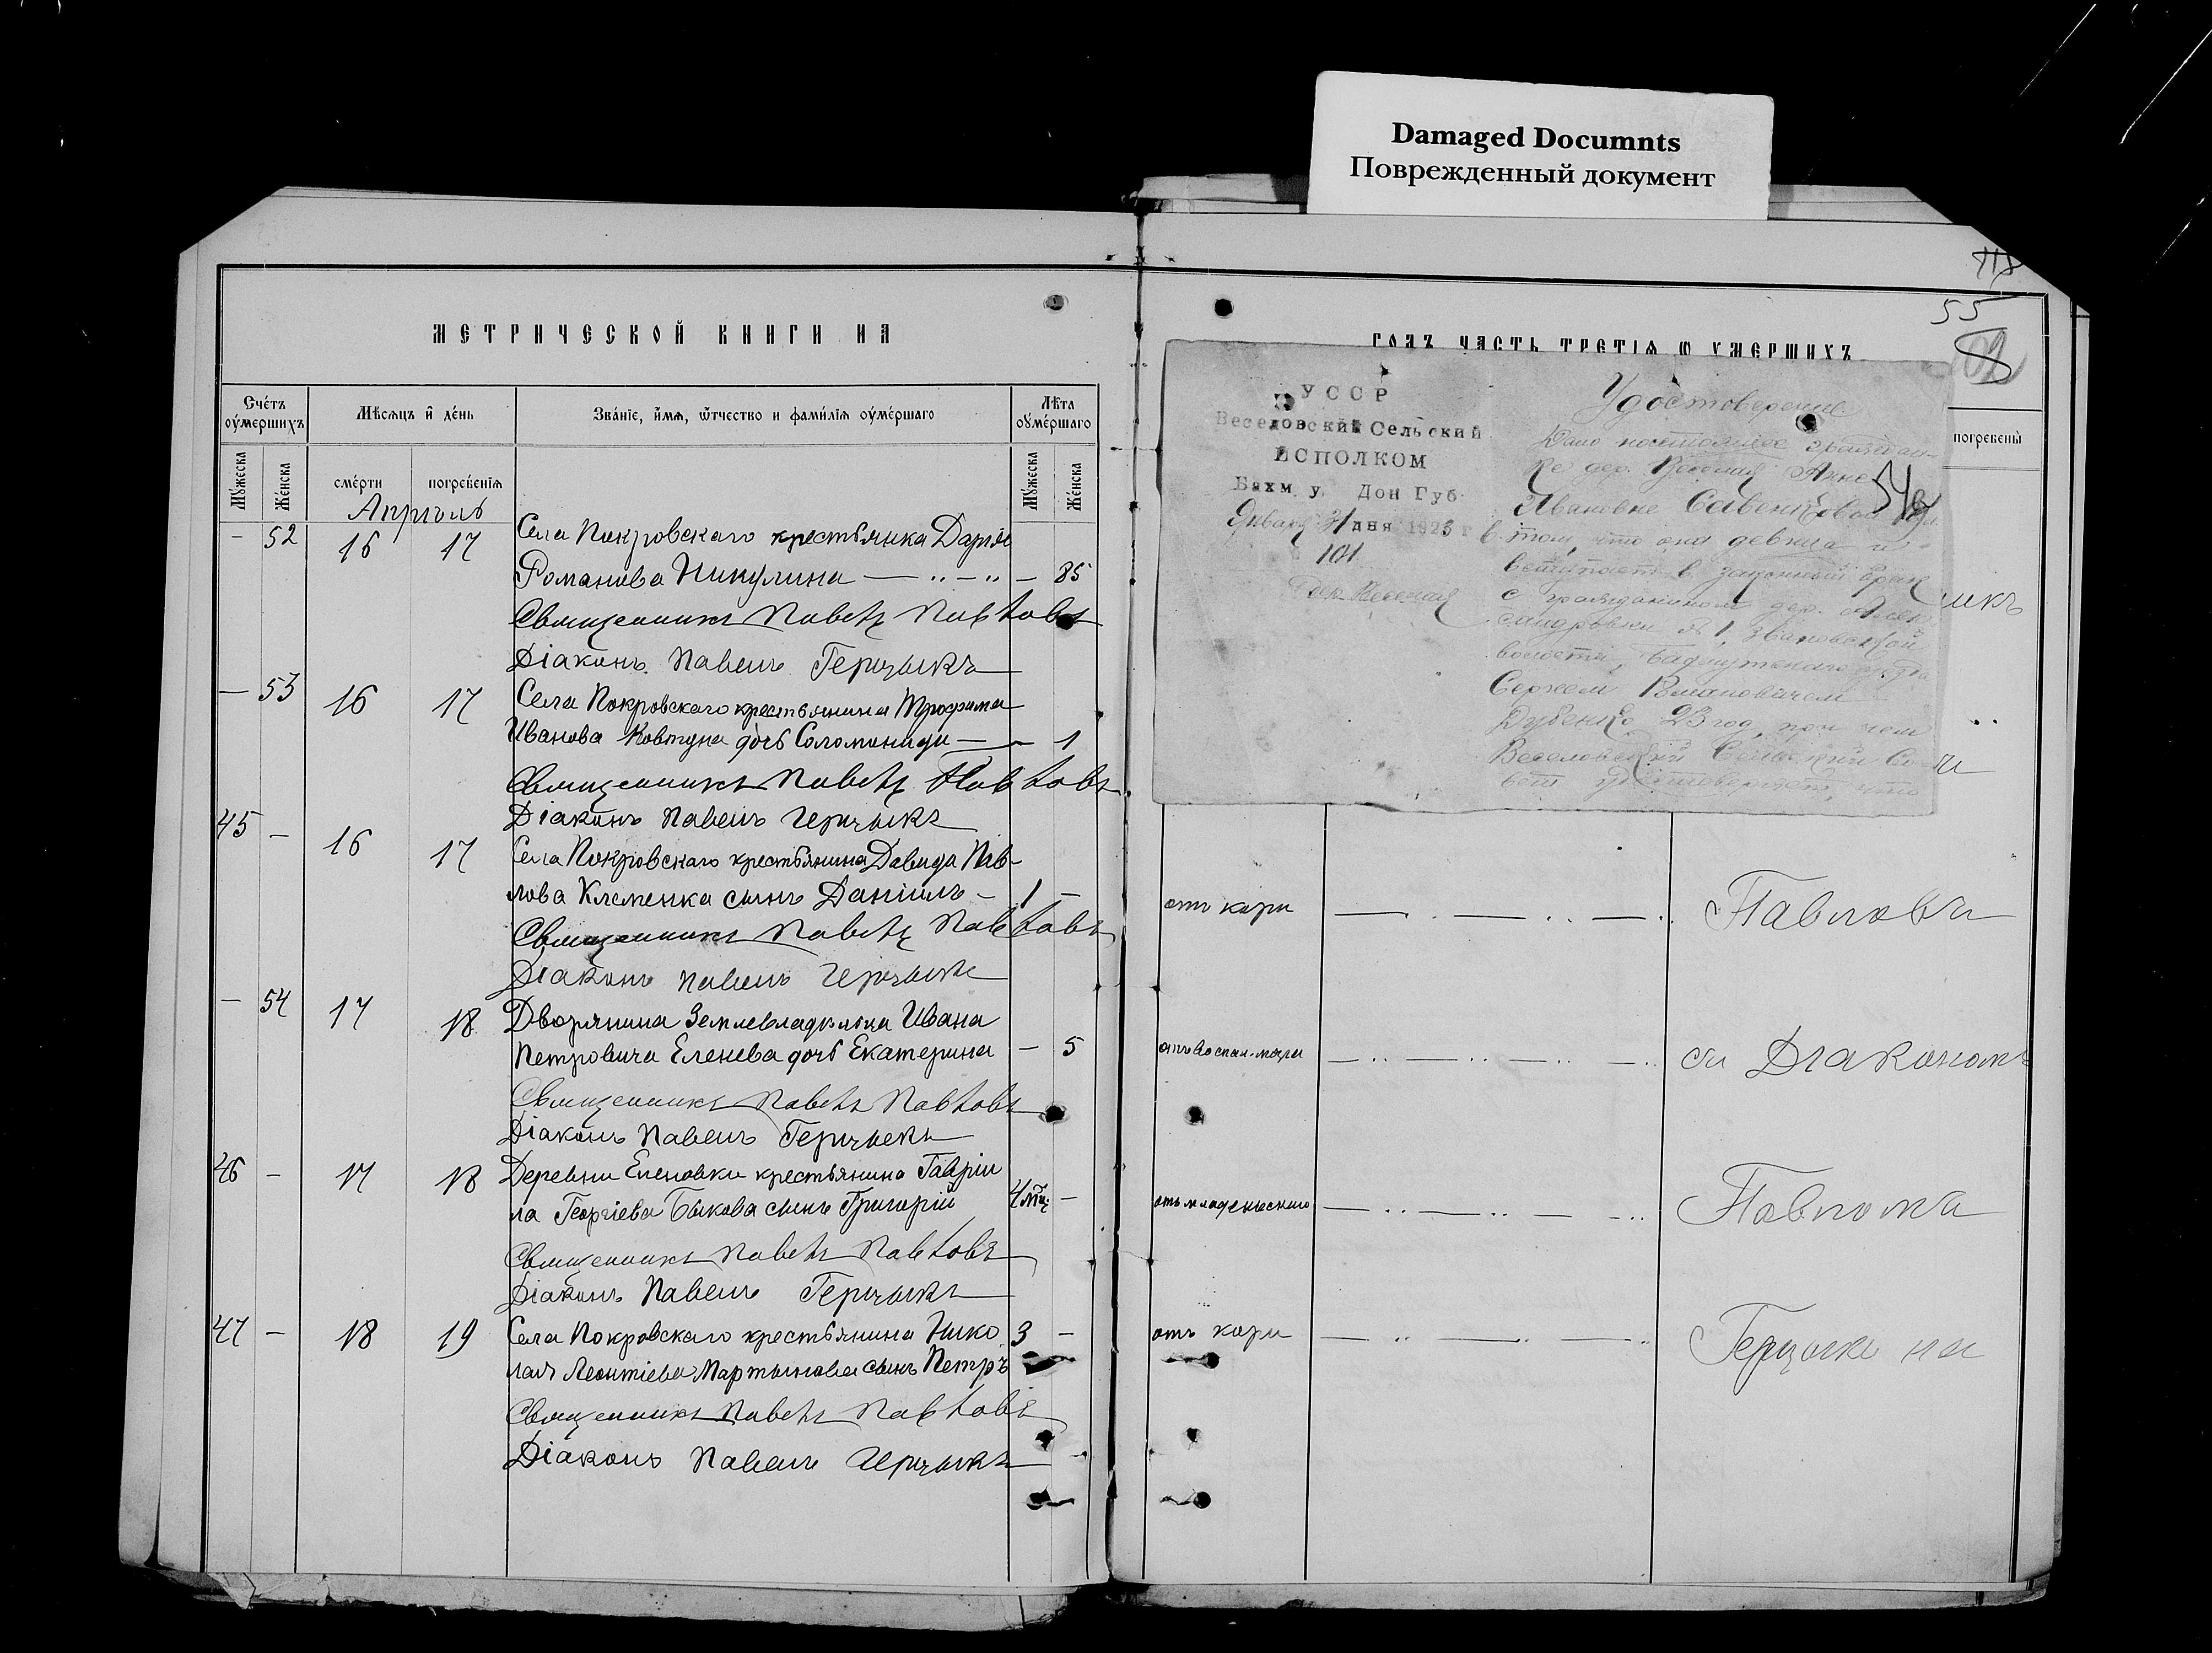 Damaged Documnts
Поврежденный документ
118
55
МЕТРИЧЕСКОЙ КНИГИ НА
Счéтъ оумéршихъ
Мѣсяцъ и дéнь
Звáнїе, имя, ѿтчество и фамилїя оумéршаго
Лѣта оумéршаго
Мужеска
Женска
смéрти
погребéнїя
Мужеска
Женска
Апрѣль
— 52 16 17 Села Покровскаго крестьянка Дарія
Романова Никулина — 85
Священникъ Павелъ Павловъ
Діаконъ Павелъ Герцыкъ
— 53 16 17 Села Покровскаго крестьянина Трофима
Иванова Ковтуна дочь Соломонида — 1
Священникъ Павелъ Павловъ
Діаконъ Павелъ Герцыкъ
45 — 16 17 Села Покровскаго крестьянина Давида Пав-
лова Клеменка сынъ Даніилъ 1 —
Священникъ Павелъ Павловъ
Діаконъ Павелъ Герцыкъ
— 54 17 18 Дворянина Землевладѣльца Ивана
Петровича Еленева дочь Екатерина — 5
Священникъ Павелъ Павловъ
Діаконъ Павелъ Герцыкъ
46 — 17 18 Деревни Еленовки крестьянина Гаврiи
ла Георгіева Быкова сынъ Григорій 4 мц —
Священникъ Павелъ Павловъ
Діаконъ Павелъ Герцыкъ
47 — 18 19 Села Покровскаго крестьянина Нико
лая Леонтіева Мартынова сынъ Петръ 3 —
Священникъ Павелъ Павловъ
Діаконъ Павелъ Герцыкъ
ГОДЪ ЧАСТЬ ТРЕТIѦ Ѡ УМЕРШИХЪ
погребены
УССР
Веселовский Сельский
ИСПОЛКОМ
Бахм. у. Дон Губ.
Января 31 дня 1923 г
101
дер. Веселая
Удостоверение
Дано настоящее граждан-
ке дер. Веселая Анне
Ивановне Савенковой
в том, что она девица и
вступает в законный брак
с гражданином дер. Алек
сандровки № 1, Звановской
волости, Бахмутского уезда
Сергеем
Дубенко 23 год, при чем
Веселовский Сельский Со-
вет удостоверяет, что
отъ кори Павловъ
съ Діакономъ
отъ младенческаго Павломъ
отъ кори